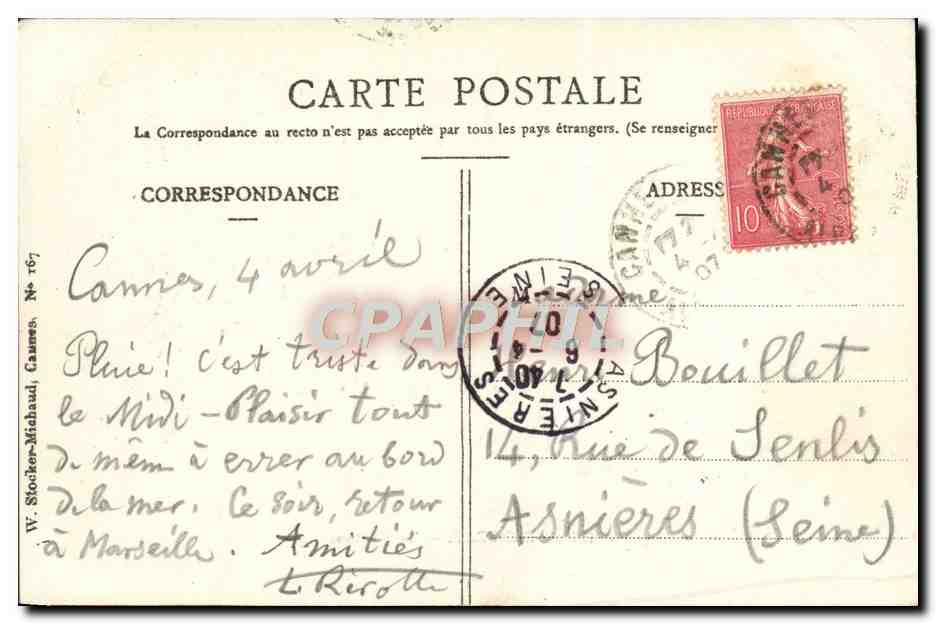 CARTE POSTALE
La Correspondance au recto n'est pas acceptée par tous les pays étrangers. (Se renseigner
CORRESPONDANCE
ADRESS
RÉPUBLIQUE FRANÇAISE
10
CANNES
4
07
ASNIERES
SEINE
7 40
6 4
07
CPAPHIL
W. Stocker-Michaud, Cannes. No 167
Cannes, 4 avril
Pluie! c'est triste dans
le Midi - Plaisir tout
de mêm à errer au bord
de la mer. Ce soir, retour
à Marseille. Amitiés
Henri Bouillet
14, Rue de Senlis
Asnières (Seine)